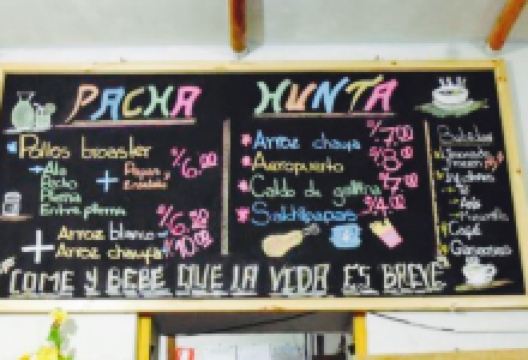 PACHA HUNTA
Pollos broaster S/6.00
Ala
Pecho
Pierna
Entre pierna
+ Papas
Ensalada
+ Arroz blanco S/6.50
Arroz chaufa 10.00
Arroz chaufa S/7.00
Aeropuerto S/8.00
Caldo de gallina S/7.00
Salchipapas S/4.00
Bebidas
Infusiones
Té
Anis
Manzanilla
Café
Gaseosas
COME Y BEBE QUE LA VIDA ES BREVE